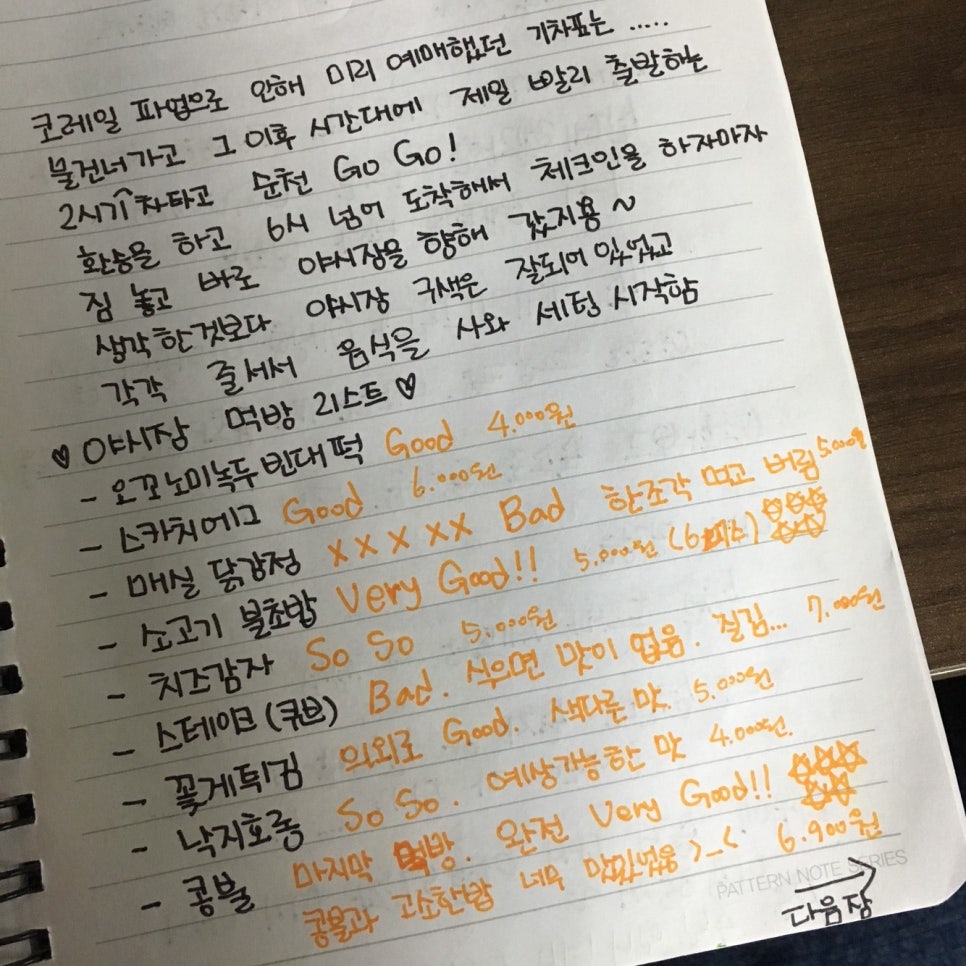 코레일 파업으로 인해 미리 예매했던 기차표는 .....
물건너가고 그 이후 시간대에 제일 빨리 출발하는
2시기차타고 순천 Go Go!
환승을 하고 6시 넘어 도착해서 체크인을 하자마자
짐 놓고 바로 야시장을 향해 갔지용~
생각한것보다 야시장 구색은 잘되어있었고
각각 줄서서 음식을 사와 세팅 시작함
♥ 야시장 먹방 리스트 ♥
- 오꼬노미녹두빈대떡 Good 4.000원
- 스카치에그 Good 6.000원
- 매실 닭강정 XXXXX Bad 한조각 먹고 버림 5.000원
- 소고기 불초밥 Very Good!! 5,000원 (6피스) ☆☆☆☆☆
- 치즈감자 So So 5.000원
- 스테이크(큐브) Bad. 식으면 맛이 없음. 질김... 7.000원
- 꽃게튀김 의외로 Good. 색다른 맛. 5.000원
- 낙지호롱 So So. 예상가능한 맛 4.000원.
- 콩불 마지막 먹방. 완전 Very Good!! ☆☆☆☆☆
콩불과 고소한밥 너무 맛있었음 >_< 6.900원
PATTERN NOTE SERIES
다음장